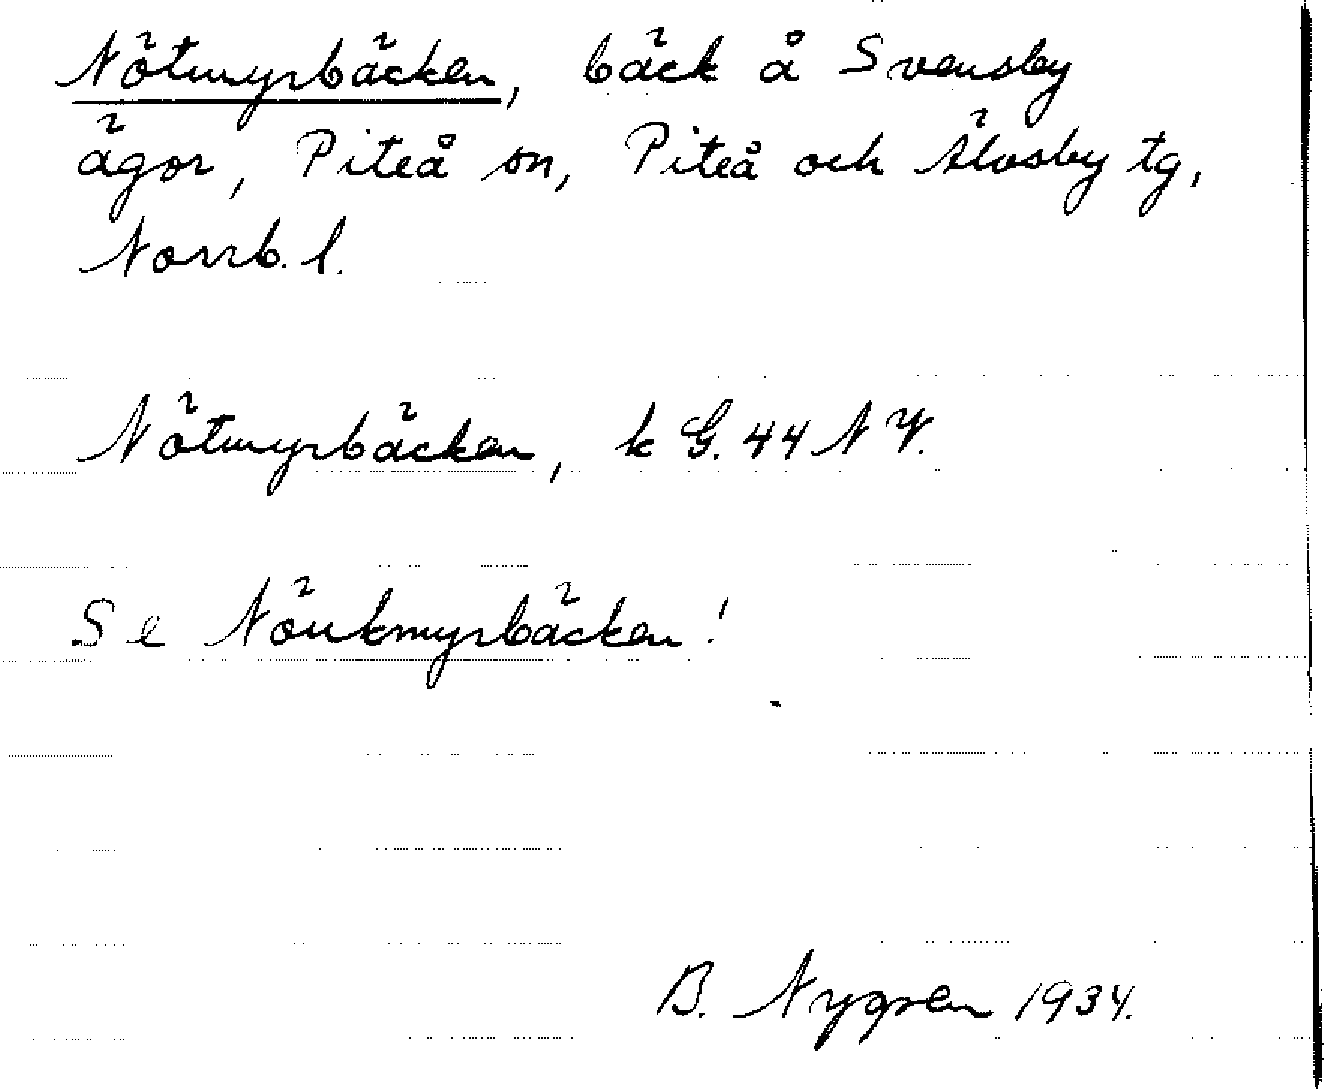 Nötmyrbäcken, bäck å Svensby
ägor, Piteå sn, Piteå och Älvsby tg,
Norrb. l.
Nötmyrbäcken, k G. 44 N V.
Se Nöukmyrbäcken!
B. Nygren 1934.